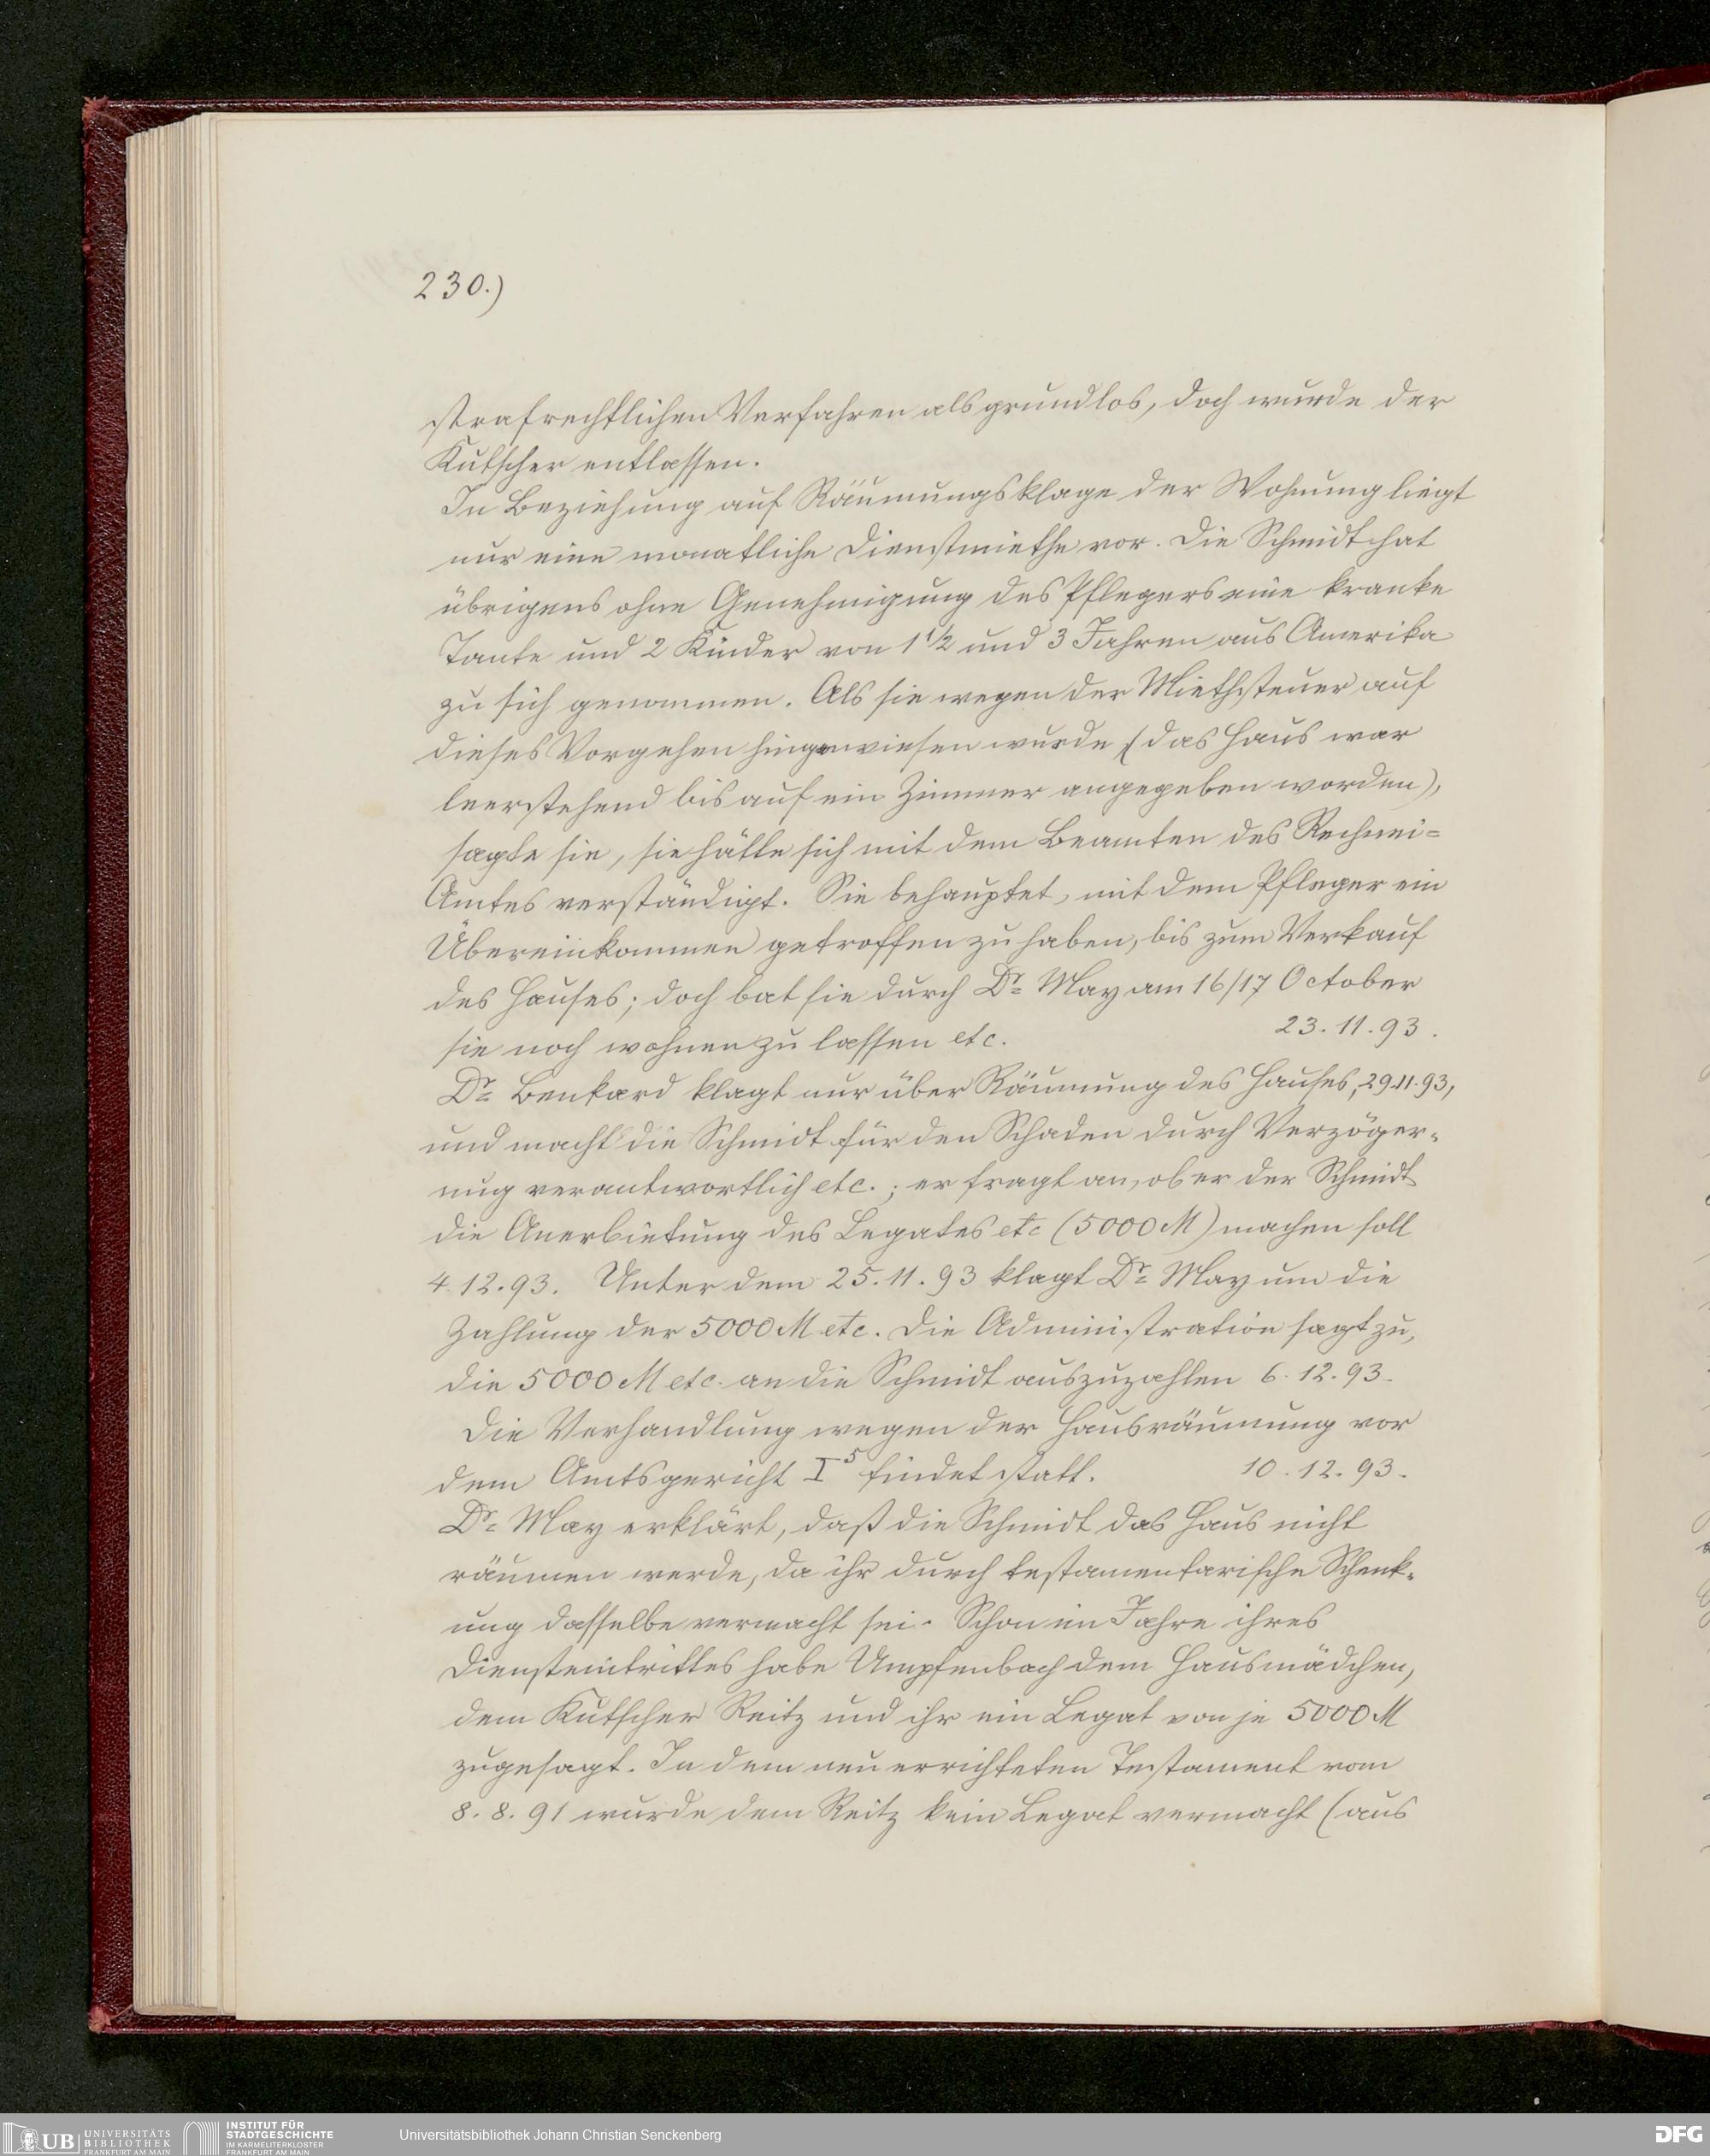 230.)
strafrechtlichen Verfahren als grundlos, doch wurde der
Kutscher entlassen.
In Beziehung auf Räumungsklage der Wohnung liegt
nur eine monatliche Dienstmiethe vor. Die Schmidt hat
übrigens ohne Genehmigung des Pflegers eine kranke
Tante und 2 Kinder von 1 1/2 und 3 Jahren aus Amerika
zu sich genommen. Als sie wegen der Miethsteuer auf
dieses Vorgehen hingewiesen wurde (das Haus war
leerstehend bis auf ein Zimmer angegeben worden),
sagte sie, sie hätte sich mit dem Beamten des Rechnei=
Amtes verständigt. Sie behauptet, mit dem Pfleger ein
Übereinkommen getroffen zu haben, bis zum Verkauf
des Hauses; doch bat sie durch Dr. May am 16/17 October
sie noch wohnen zu lassen etc. 23.11.93.
Dr. Benkard klagt nur über Räumung des Hauses, 29.11.93,
und macht die Schmidt für den Schaden durch Verzöger-
ung verantwortlich etc.; er fragt an, ob er der Schmidt
die Anerbietung des Legates etc (5000 M) machen soll
4.12.93. Unter dem 25.11.93 klagt Dr. May um die
Zahlung der 5000 M etc. Die Administration sagt zu,
die 5000 M etc. an die Schmidt auszuzahlen 6.12.93.
Die Verhandlung wegen der Hausräumung vor
dem Amtsgericht I⁵ findet statt. 10.12.93.
Dr. May erklärt, daß die Schmidt das Haus nicht
räumen werde, da ihr durch testamentarische Schenk-
ung dasselbe vermacht sei. Schon im Jahre ihres
Diensteintrittes habe Umpfenbach dem Hausmädchen,
dem Kutscher Reitz und ihr ein Legat von je 5000 M
zugesagt. In dem neu errichteten Testament vom
8.8.91 wurde dem Reitz kein Legat vermacht (aus
UB UNIVERSITÄTS
BIBLIOTHEK
FRANKFURT AM MAIN
INSTITUT FÜR
STADTGESCHICHTE
IM KARMELITERKLOSTER
FRANKFURT AM MAIN
Universitätsbibliothek Johann Christian Senckenberg
DFG